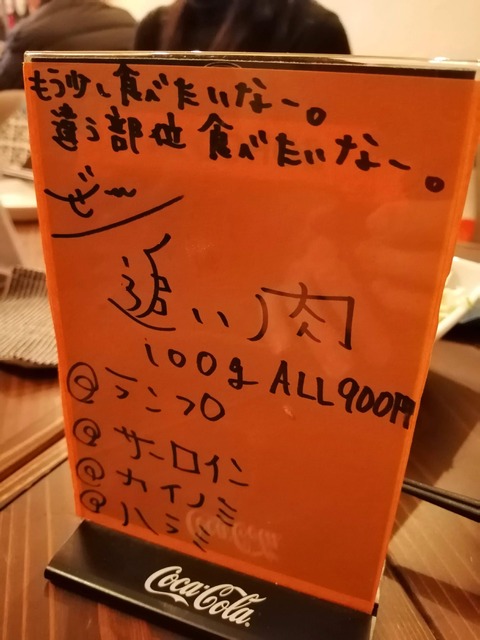 もう少し食べたいなー。
違う部位食べたいなー。
ぜー
追い肉
100g ALL900円
@ランプ
@サーロイン
@カイノミ
@ハラミ
Coca-Cola